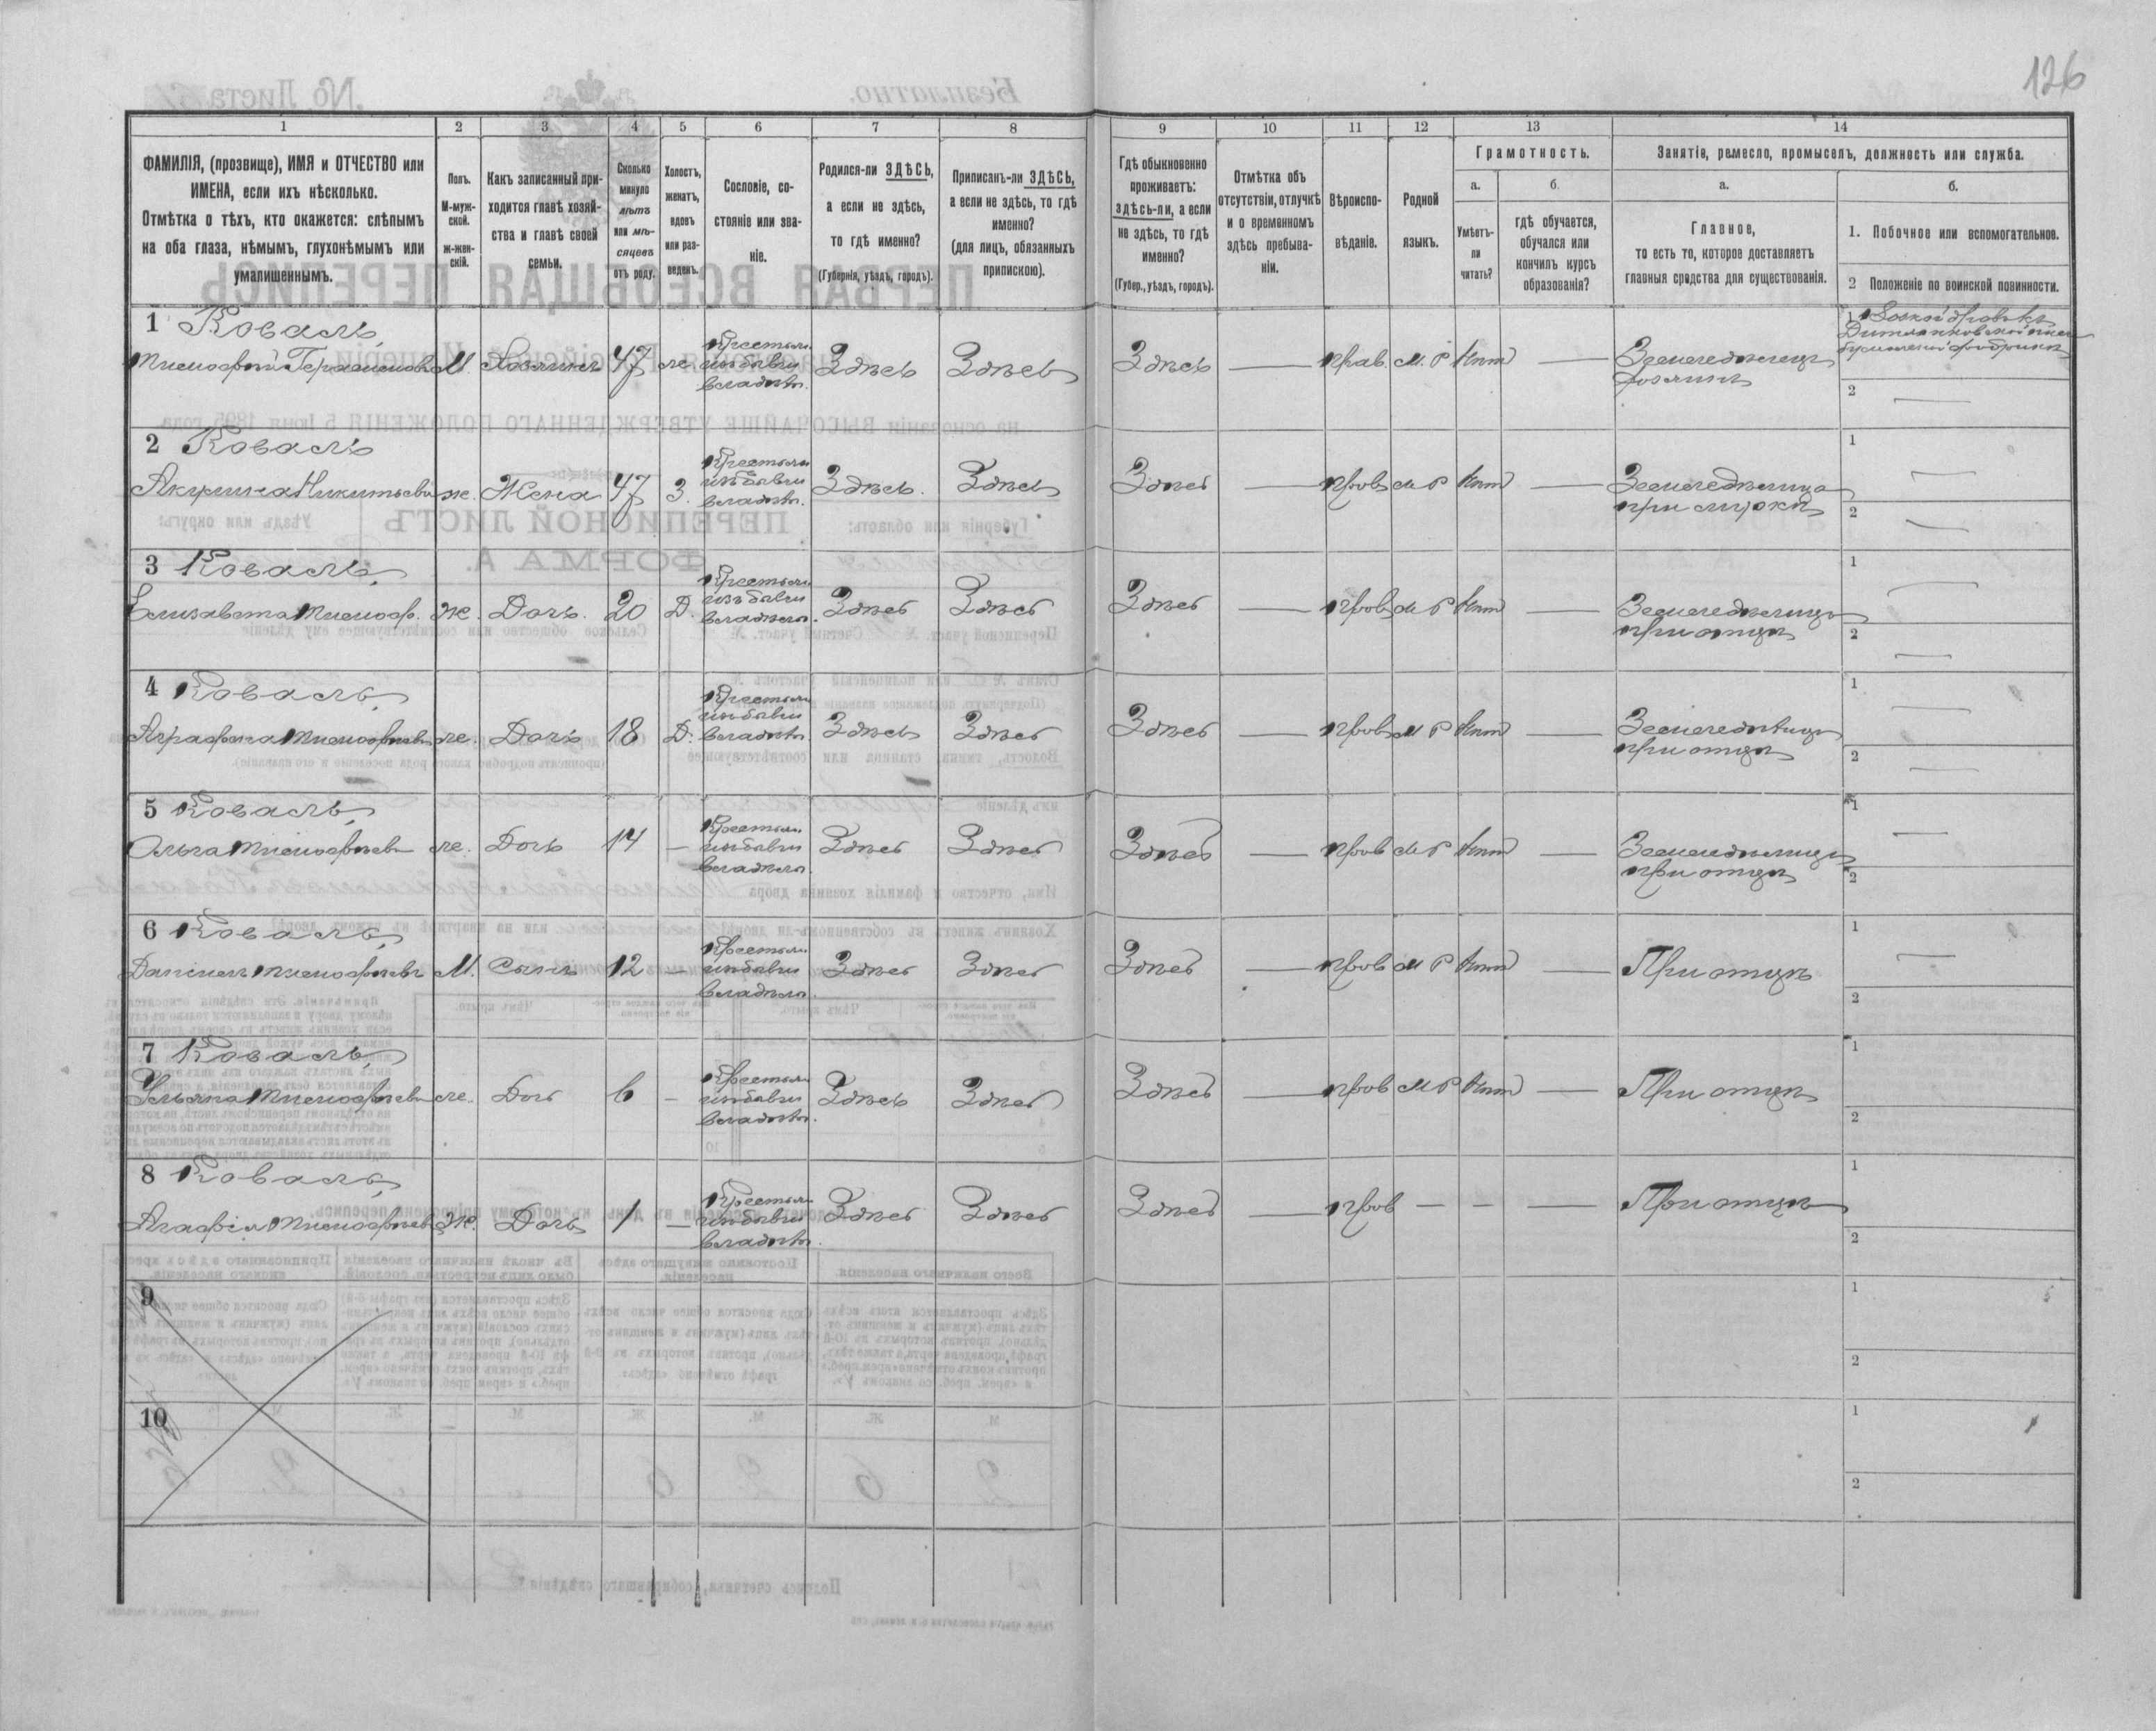 126
1
2
3
4
5
6
7
8
9
10
11
12
13
14
ФАМИЛІЯ, (прозвище), ИМЯ и ОТЧЕСТВО или
ИМЕНА, если ихъ нѣсколько.
Отмѣтка о тѣхъ, кто окажется: слѣпымъ
на оба глаза, нѣмымъ, глухонѣмымъ или
умалишеннымъ.
Полъ.
М-муж-
ской.
ж-жен-
скій.
Какъ записанный при-
ходится главѣ хозяй-
ства и главѣ своей
семьи.
Сколько
минуло
лѣтъ
или мѣ-
сяцевъ
отъ роду.
Холостъ,
женатъ,
вдовъ
или раз-
веденъ.
Сословіе, со-
стояніе или зва-
ніе.
Родился-ли ЗДѢСЬ,
а если не здѣсь,
то гдѣ именно?
(Губернія, уѣздъ, городъ).
Приписанъ-ли ЗДѢСЬ,
а если не здѣсь, то гдѣ
именно?
(для лицъ, обязанныхъ
припискою).
Гдѣ обыкновенно
проживаетъ:
здѣсь-ли, а если
не здѣсь, то гдѣ
именно?
(Губер., уѣздъ, городъ).
Отмѣтка объ
отсутствіи, отлучкѣ
и о временномъ
здѣсь пребыва-
ніи.
Вѣроиспо-
вѣданіе.
Родной
языкъ.
Грамотность.
а.
Умѣетъ-
ли
читать?
б.
гдѣ обучается,
обучался или
кончилъ курсъ
образованія?
Занятіе, ремесло, промыселъ, должность или служба.
а.
Главное,
то есть то, которое доставляетъ
главныя средства для существованія.
б.
1. Побочное или вспомогательное.
2 Положеніе по воинской повинности.
1 Коваль
Тимофей Герасимовъ М. Хозяинъ 47 ж. Крестьян. изъ бывш. владѣл. Здѣсь Здѣсь Здѣсь — прав. М. Р Нѣт — Земледѣлецъ
хозяинъ
1
2 —
2 Коваль
Акулина Никитьевн ж. Жена 47 З. Крестьян изъ бывш владѣл. Здѣсь. Здѣсь Здѣсь — прав М Р Нѣт — Земледѣлица
при мужѣ
1 —
2 —
3 Коваль
Елизавета Тимоф. Ж. Дочь. 20 Д. Крестьян изъ бывш владѣл. Здѣсь Здѣсь Здѣсь — прав М Р Нѣт — Земледѣлица
при отцѣ
1 —
2 —
4 Коваль
Аграфена Тимофеев ж. Дочь 18 Д. Крестьян изъ бывш владѣл. Здѣсь Здѣсь Здѣсь — прав М Р Нѣт — Земледѣлица
при отцѣ
1 —
2 —
5 Коваль
Ольга Тимофеев ж. Дочь 14 — Крестьян изъ бывш владѣл. Здѣсь Здѣсь Здѣсь — прав М Р Нѣт — Земледѣлица
при отцѣ
1 —
2
6 Коваль
Даніил Тимофеевъ М. Сынъ 12 — Крестьян изъ бывш владѣл. Здѣсь Здѣсь Здѣсь — прав М Р Нѣт — При отцѣ
1 —
2
7 Коваль
Ульяна Тимофеев ж. Дочь 6 — Крестьян изъ бывш владѣл. Здѣсь Здѣсь Здѣсь — прав М Р Нѣт — При отцѣ
1
2
8 Коваль
Агафія Тимофеев Ж. Дочь 1 — Крестьян изъ бывш владѣл. Здѣсь Здѣсь Здѣсь — прав — — — При отцѣ
1
2
9
1
2
10
1
2